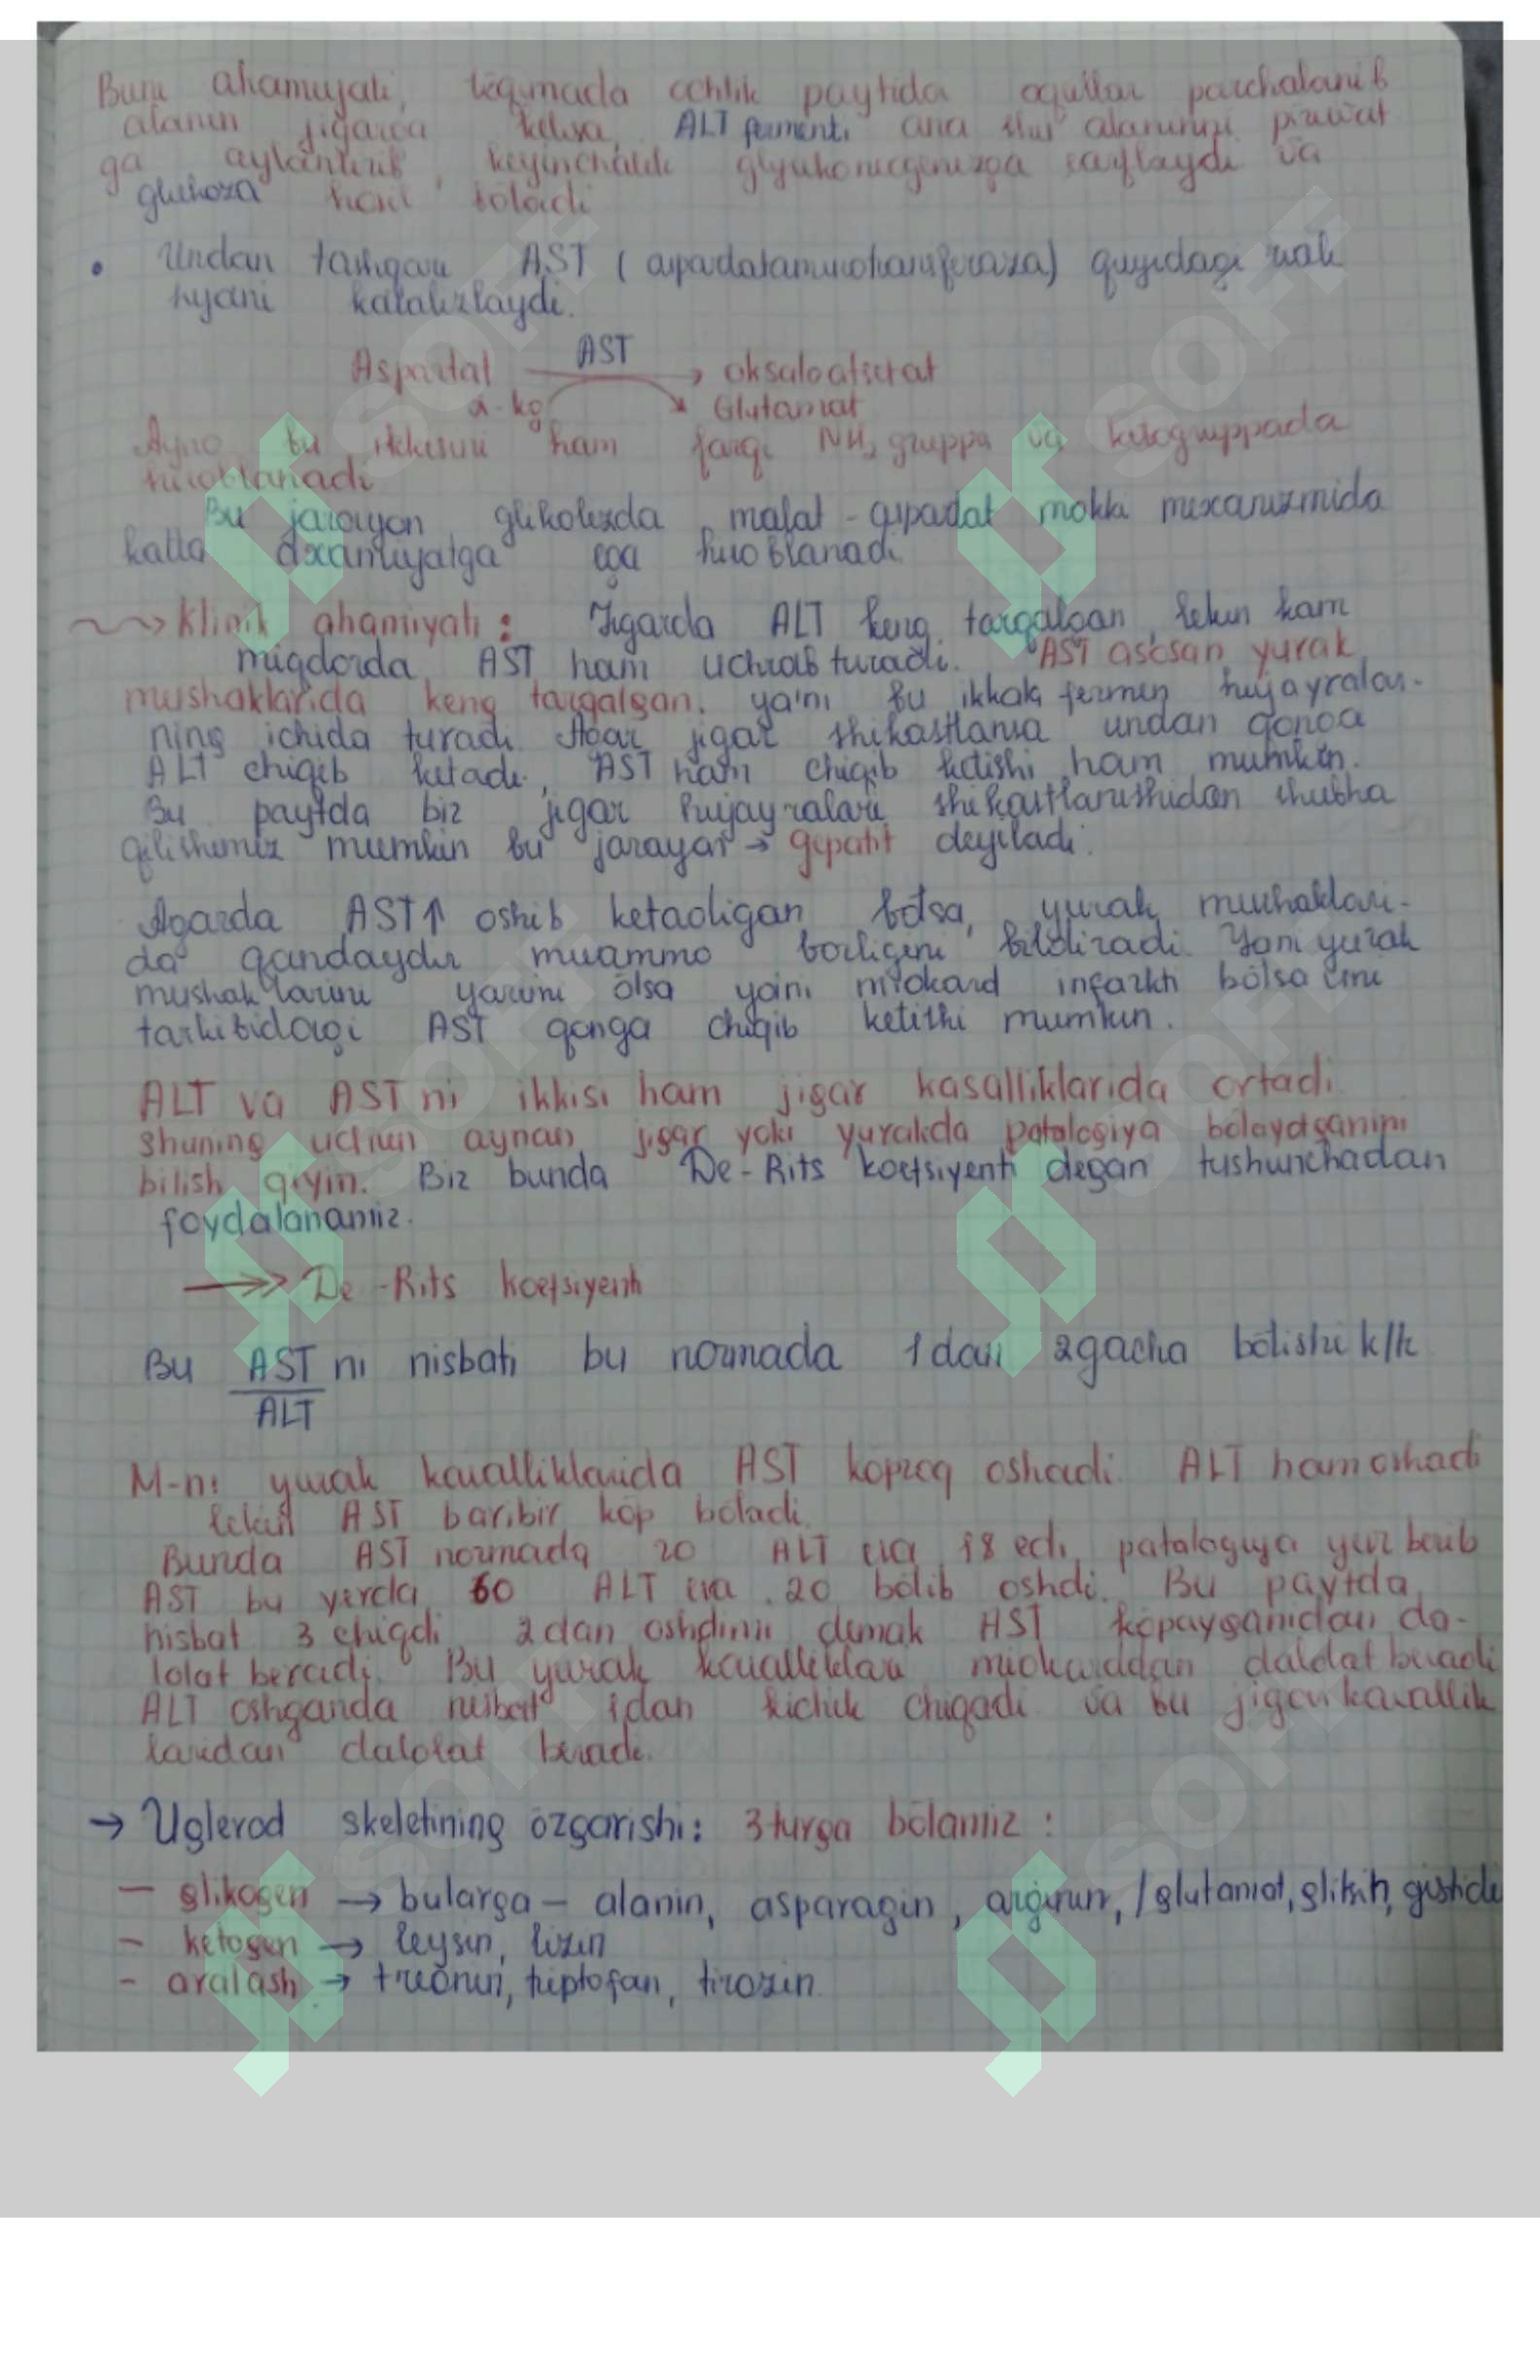 Buni ahamiyati, to'qimada ochlik paytida oqsillar parchalanib
alanin jigarga kelsa, ALT fermenti ana shu alaninni piruvat
ga aylantirib, keyinchalik glyukoneogenezga sarflaydi va
glukoza hosil bo'ladi
• Undan tashqari AST (aspartataminotransferaza) quyidagi reak
siyani katalizlaydi.
AST
Aspartat → oksaloatsetat
α-kg Glutamat
Ayno bu ikkisini ham farqi NH₂ gruppa va ketogruppada
hisoblanadi
Bu jarayon glikolizda malat-aspartat mokki mexanizmida
katta axamiyatga ega hisoblanadi
Klinik ahamiyati: Jigarda ALT keng tarqalgan, lekin kam
miqdorda AST ham uchrab turadi. AST asosan yurak
mushaklarida keng tarqalgan. ya'ni bu ikkala fermen hujayralar-
ning ichida turadi. Agar jigar shikastlansa undan qonga
ALT chiqib ketadi, AST ham chiqib ketishi ham mumkin.
Bu paytda biz jigar hujayralari shikastlanishidan shubha
qilishimiz mumkin bu jarayar → gepatit deyiladi.
Agarda AST↑ oshib ketadigan bo'lsa, yurak mushaklari-
da qandaydir muammo borligini bildiradi. Yani yurak
mushaklarini yarimi o'lsa yaini miokard infarkti bo'lsa uni
tarkibidagi AST qonga chiqib ketishi mumkin.
ALT va AST ni ikkisi ham jigar kasalliklarida ortadi.
Shuning uchun aynan jigar yoki yurakda patalogiya bolayotganini
bilish qiyin. Biz bunda De-Rits koefsiyenti degan tushunchadan
foydalanamiz.
→ De-Rits koefsiyenti
Bu AST ni nisbati bu normada 1dan 2gacha bo'lishi k/k
ALT
M-n: yurak kasalliklarida AST koproq oshadi. ALT ham oshadi
lekin AST baribir kop bo'ladi.
Bunda AST normada 20 ALT esa 18 edi, patalogiya yuz berib
AST bu yerda 60 ALT esa 20 bo'lib oshdi. Bu paytda
nisbat 3 chiqdi, 2dan oshdimi demak AST ko'payganidan da-
lolat beradi. Bu yurak kasalliklari miokarddan dalolat beradi
ALT oshganda nisbat 1dan kichik chiqadi va bu jigar kasallik
laridan dalolat beradi.
→ Uglerod skeletining o'zgarishi: 3 turga bo'lamiz:
— glikogen → bularga – alanin, asparagin, arginin, /glutamat, glitsin, gistidi
– ketogen → leysin, lizin
– aralash → treonin, triptofan, tirozin